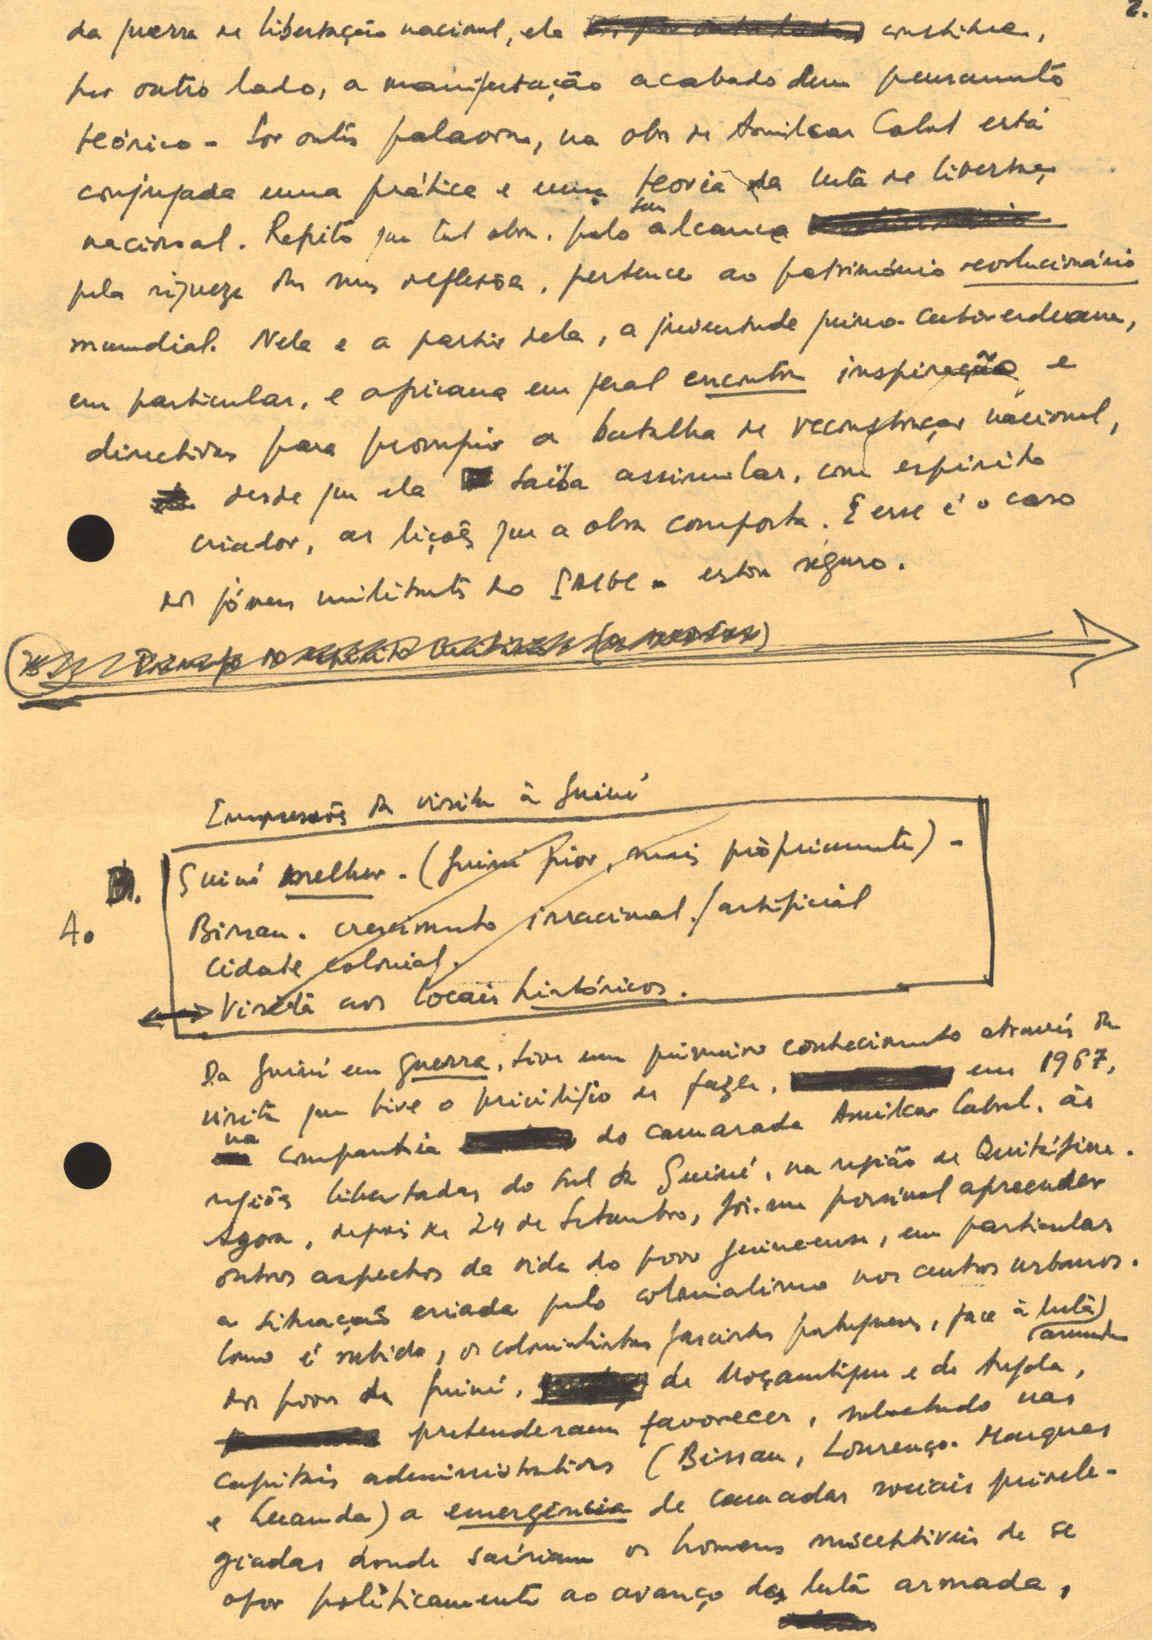 2.
da guerra de libertação nacional, ela constitue,
por outro lado, a manifestação acabado dum pensamento
teórico. Por outras palavras, na obra de Amilcar Cabral está
conjugada uma prática e uma teoria da luta de libertação
nacional. Repito que tal obra, pelo seu alcance
pela riqueza das suas reflexões, pertence ao património revolucionário
mundial. Nela e a partir dela, a juventude guineo-caboverdeana,
em particular, e africana em geral encontra inspiração e
directivas para prosseguir a batalha de reconstrução nacional,
desde que ela saiba assimilar, com espírito
criador, as lições que a obra comporta. E esse é o caso
dos jóvens militantes do PAIGC - estou seguro.
Impressões da visita à Guiné
B. Guiné melhor - (Guiné pior, mais pròpriamente) -
A. Bissau. crescimento irracional./artificial
Cidade colonial.
Visita aos locais históricos.
Da Guiné em guerra, tive um primeiro conhecimento através da
visita que tive o privilégio de fazer, em 1967,
na companhia do camarada Amilcar Cabral, às
regiões libertadas do sul da Guiné, na região de Quitáfine.
Agora, depois de 24 de Setembro, foi-me possível apreender
outros aspectos da vida do povo guineense, em particular
a situação criada pelo colonialismo nos centros urbanos.
Como é sabido, os colonialistas fascistas portugueses, face à luta armada
dos povos da Guiné, de Moçambique e de Angola,
pretenderam favorecer, sobretudo nas
capitais administrativas (Bissau, Lourenço-Marques
e Luanda) a emergência de camadas sociais privele-
giadas donde saíriam os homens susceptíveis de se
opor políticamente ao avanço da luta armada,